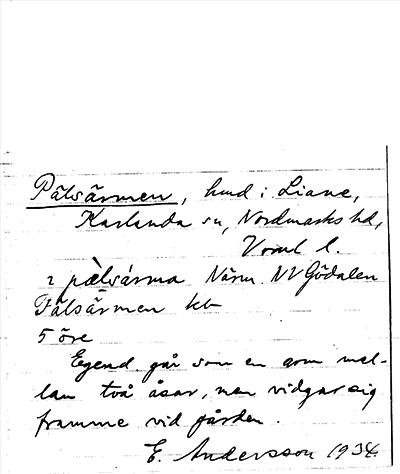 Pälsärmen, hmd i Liane,
Karlanda sn, Nordmarks hd,
Värml l.
2 pœ̀lsárma Närm. NV Gödalen
Pälsärmen kb
5 öre
Egend. går som en arm mel-
lan två åsar, men vidgar sig
framme vid gården.
E. Andersson 1934.